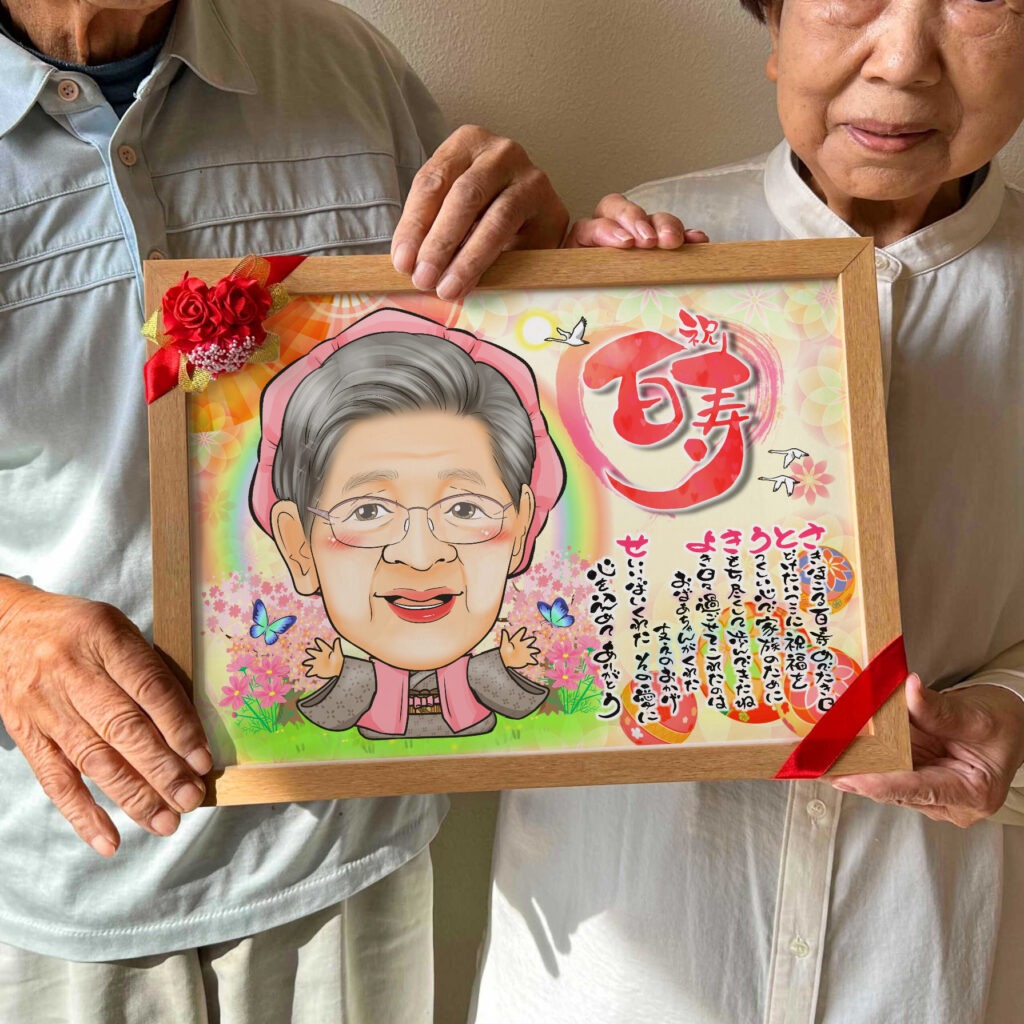 祝
百寿
さきほこる百寿のめでたき日
とどけたいここに祝福を
うつくしい心で家族のために
きもち尽くして歩んできたね
よき日々過ごせてこれたのは
おばあちゃんがくれた
支えのおかげ
せいいっぱいくれた その愛に
心をこめてありがとう